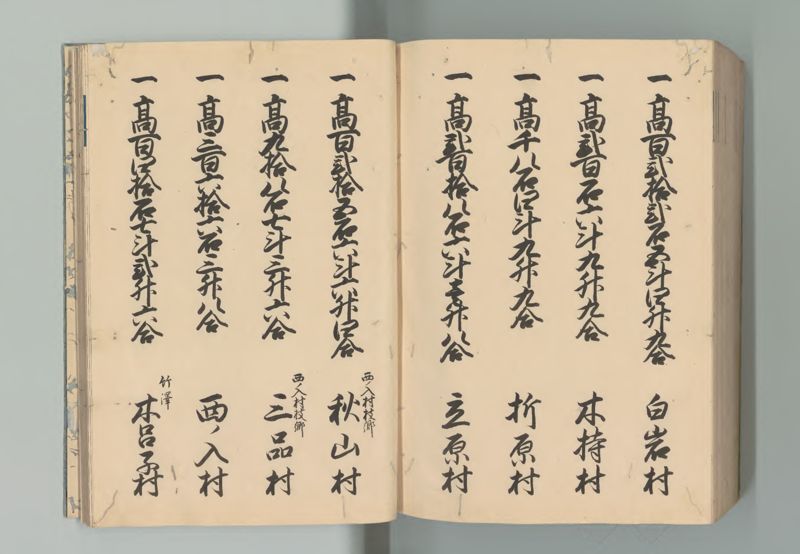 一高百弐拾弐石五斗四升九合 白岩村
一高弐百石六斗九升九合 木持村
一高千八石四斗九升九合 折原村
一高弐百拾八石六斗壱升八合 立原村
一高百弐拾五石六斗六升四合 西ノ入村枝郷 秋山村
一高九拾八石七斗三升六合 西ノ入村枝郷 三品村
一高三百六拾六石三升八合 西ノ入村
一高百四拾石七斗弐升六合 竹澤 木呂子村